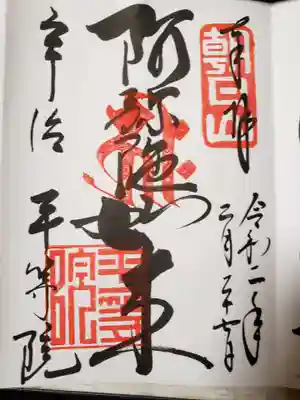 奉拝
朝日山
令和二年
二月
阿弥陀如来
宇治 平等院
平等院